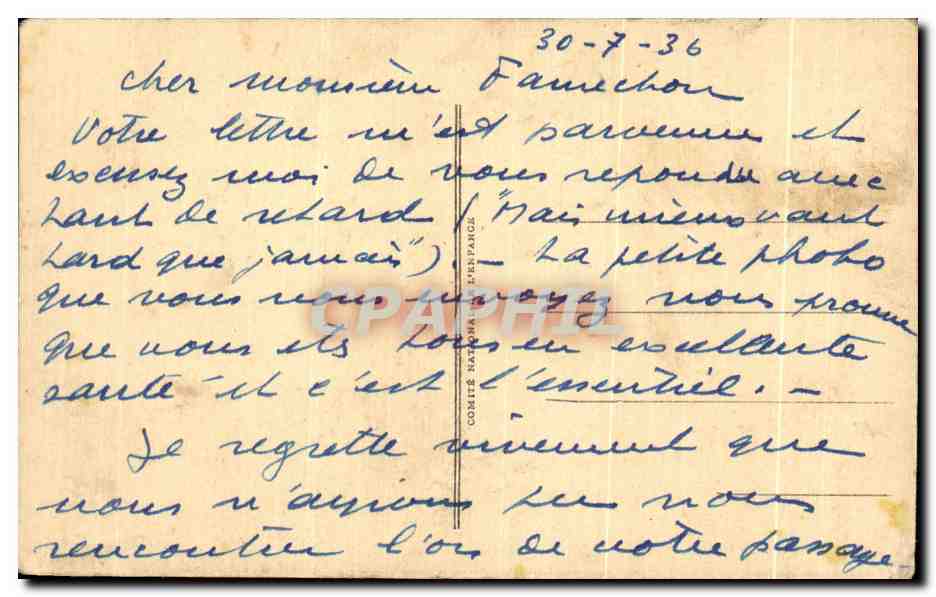 30-7-36
Cher monsieur Famechon
Votre lettre m'est parvenue et
excusez moi de vous repondre avec
tant de retard ("Mais mieux vaut
tard que jamais"). - La petite photo
que vous nous envoyez nous prouve
que vous ets tous en excellente
santé et c'est l'essentiel. -
Je regrette vivement que
nous n'ayions pu nous
rencontrer l'ors de notre passage-
COMITÉ NATIONAL DE L'ENFANCE
CPAPHIL